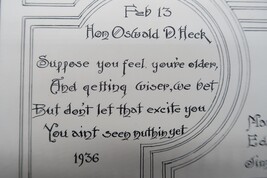 Feb 13
Hon Oswald D. Heck
Suppose you feel, you're older,
And getting wiser, we bet
But don't let that excite you
You aint seen nuthin yet
1936